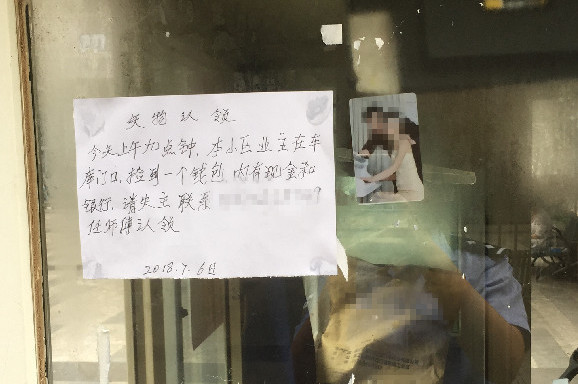 失物认领
今天上午九点钟，本小区业主在车
库门口，捡到一个钱包，内有现金和
银行，请失主联系 9
任师傅认领
2018.7.6日